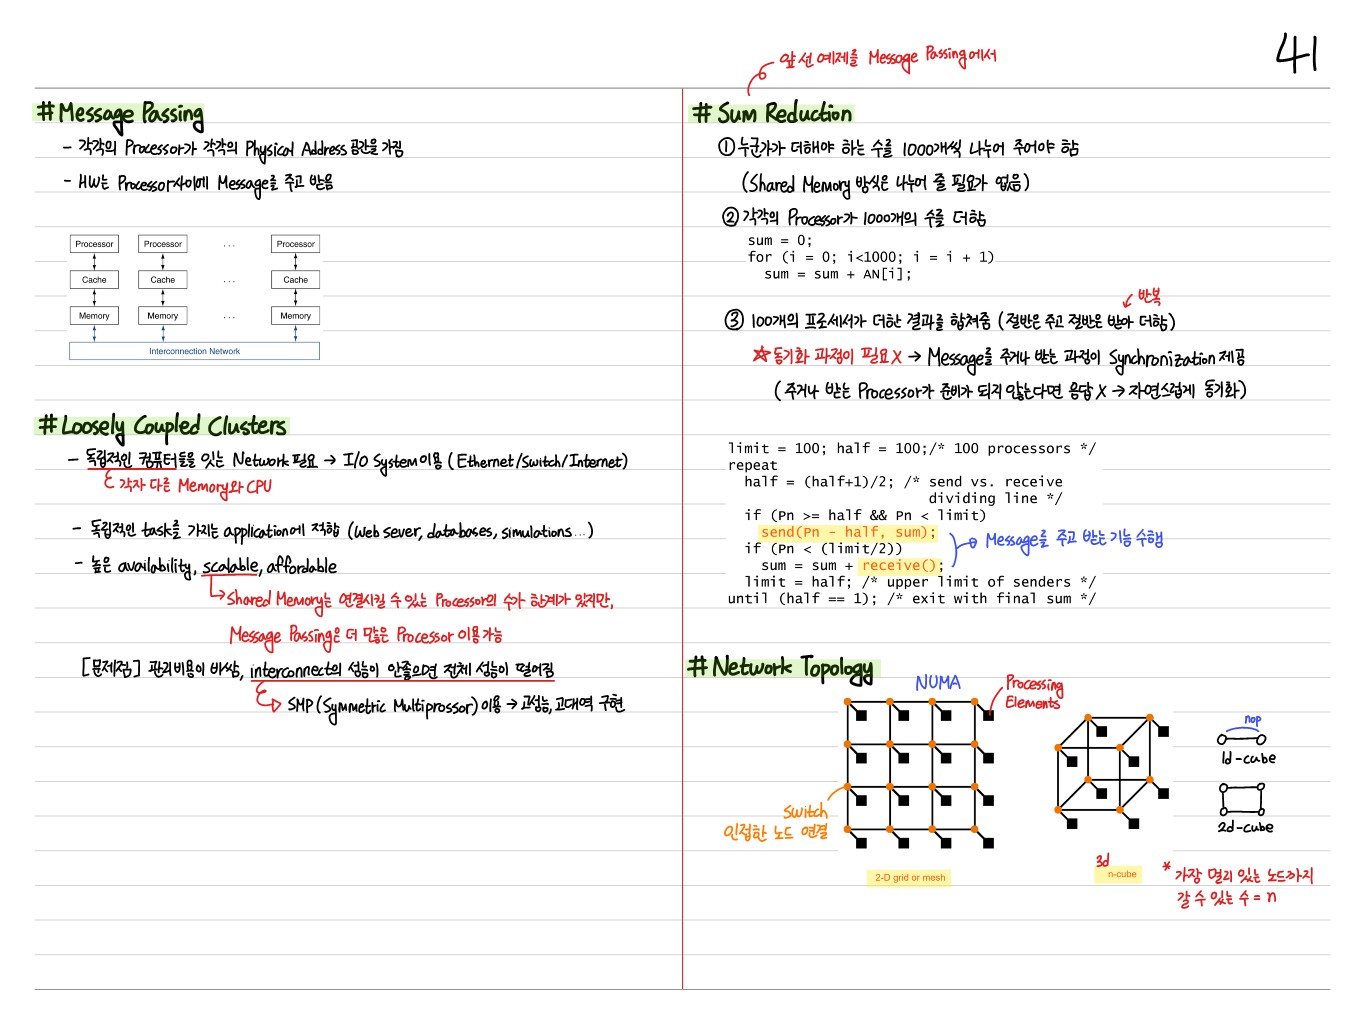 41
# Message Passing
- 각각의 Processor가 각각의 Physical Address 공간을 가짐
- HW는 Processor사이에 Message를 주고 받음
Processor Processor ... Processor
Cache Cache ... Cache
Memory Memory ... Memory
Interconnection Network
# Loosely Coupled Clusters
- 독립적인 컴퓨터들을 잇는 Network 필요 → I/O System 이용 (Ethernet/Switch/Internet)
각자 다른 Memory와 CPU
- 독립적인 task를 가지는 application에 적합 (Web sever, databases, simulations...)
- 높은 availability, scalable, affordable
Shared Memory는 연결시킬 수 있는 Processor의 수가 한계가 있지만,
Message Passing은 더 많은 Processor 이용가능
[문제점] 관리비용이 비쌈, interconnect의 성능이 안좋으면 전체 성능이 떨어짐
SMP (Symmetric Multiprossor) 이용 → 고성능, 고대역 구현
앞선 예제를 Message Passing에서
# Sum Reduction
① 누군가가 더해야 하는 수를 1000개씩 나누어 주어야 함
(Shared Memory 방식은 나누어 줄 필요가 없음)
② 각각의 Processor가 1000개의 수를 더함
sum = 0;
for (i = 0; i<1000; i = i + 1)
sum = sum + AN[i];
반복
③ 100개의 프로세서가 더한 결과를 합쳐줌 (절반은 주고 절반은 받아 더함)
☆ 동기화 과정이 필요 X → Message를 주거나 받는 과정이 Synchronization 제공
(주거나 받는 Processor가 준비가 되지 않는다면 응답 X → 자연스럽게 동기화)
limit = 100; half = 100;/* 100 processors */
repeat
half = (half+1)/2; /* send vs. receive
dividing line */
if (Pn >= half && Pn < limit)
send(Pn - half, sum);
if (Pn < (limit/2))
sum = sum + receive();
limit = half; /* upper limit of senders */
until (half == 1); /* exit with final sum */
Message를 주고 받는 기능 수행
# Network Topology
NUMA
Processing
Elements
Switch
인접한 노드 연결
2-D grid or mesh
3d
n-cube
nop
1d-cube
2d-cube
* 가장 멀리 있는 노드까지
갈 수 있는 수 = n